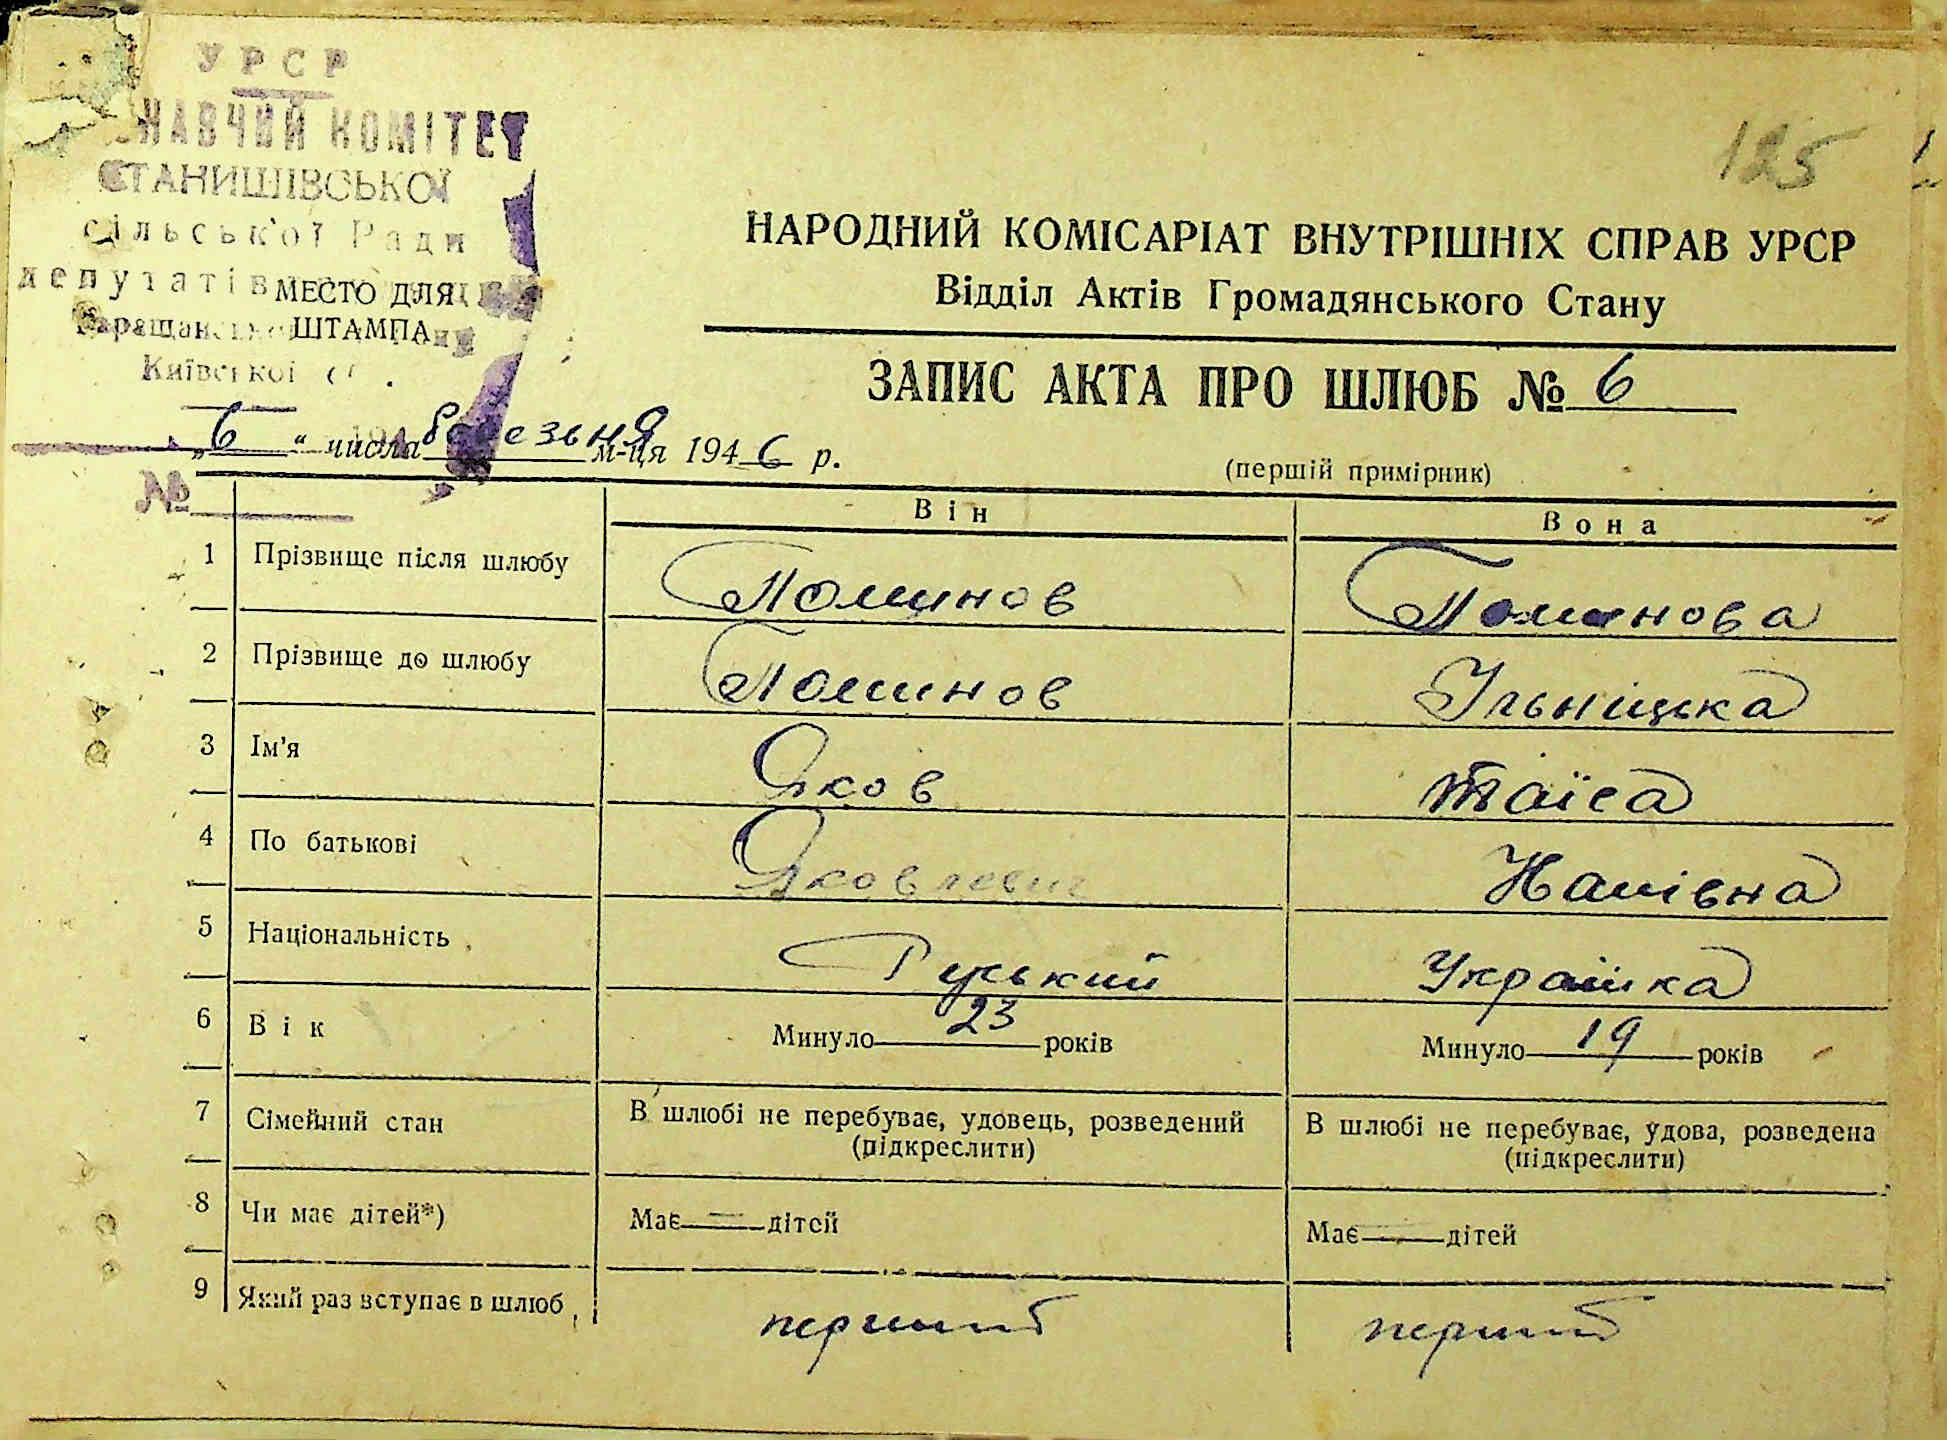 УРСР
НАВЧИЙ КОМІТЕТ
СТАНИШІВСЬКОЇ
сільської Ради
депутатів
МЕСТО ДЛЯ
ШТАМПА
Київської
125
НАРОДНИЙ КОМІСАРІАТ ВНУТРІШНІХ СПРАВ УРСР
Відділ Актів Громадянського Стану
ЗАПИС АКТА ПРО ШЛЮБ № 6
„6“ числа березня м-ця 1946 р.
(першій примірник)
№
Він Вона
1 Прізвище після шлюбу Поминов Поминова
2 Прізвище до шлюбу Поминов Ільніцька
3 Ім'я Яков Таїса
4 По батькові Яковлевич
5 Національність Руський Українка
6 Вік Минуло 23 років Минуло 19 років
7 Сімейний стан В шлюбі не перебуває, удовець, розведений (підкреслити) В шлюбі не перебуває, удова, розведена (підкреслити)
8 Чи має дітей*) Має — дітей Має — дітей
9 Який раз вступає в шлюб перший перший